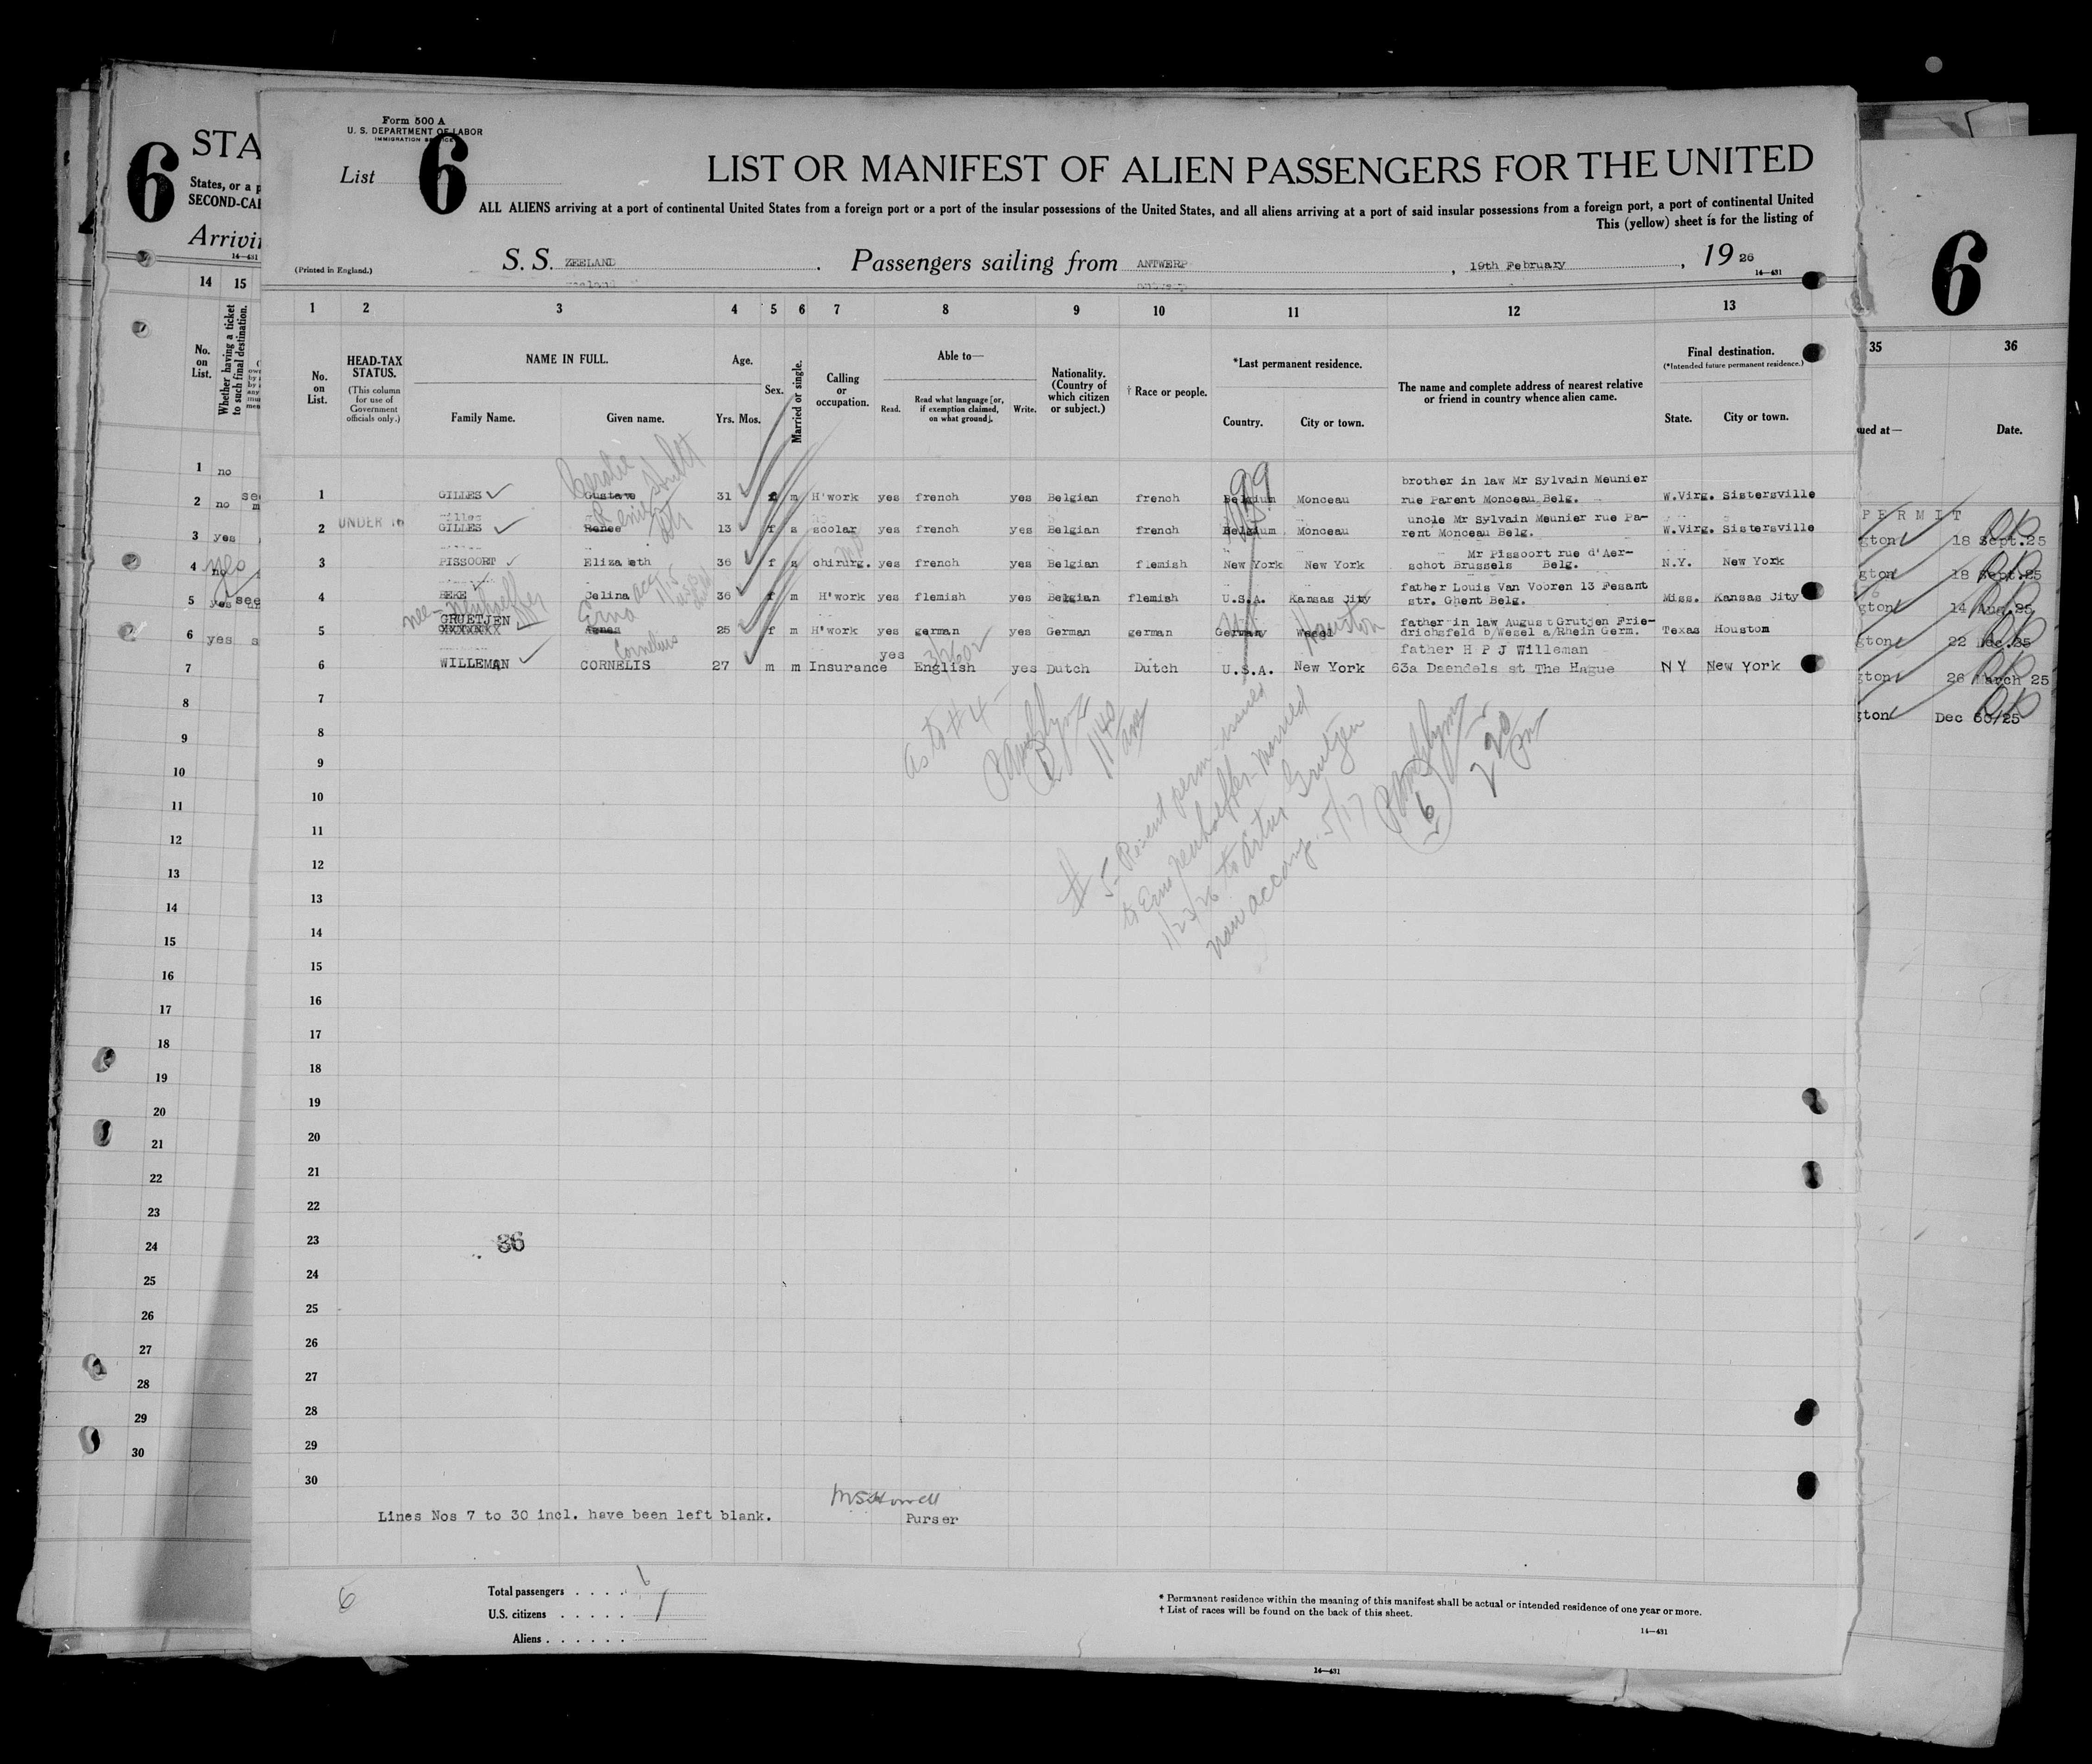 Form 500 A
U. S. DEPARTMENT OF LABOR
IMMIGRATION SERVICE
List 6
LIST OR MANIFEST OF ALIEN PASSENGERS FOR THE UNITED
ALL ALIENS arriving at a port of continental United States from a foreign port or a port of the insular possessions of the United States, and all aliens arriving at a port of said insular possessions from a foreign port, a port of continental United
This (yellow) sheet is for the listing of
(Printed in England.)
S. S. ZEELAND . Passengers sailing from ANTWERP , 19th February , 19 26
14—431
1 2 3 4 5 6 7 8 9 10 11 12 13
No. on List.
HEAD-TAX STATUS.
(This column for use of Government officials only.)
NAME IN FULL.
Family Name. Given name.
Age.
Yrs. Mos.
Sex.
Married or single.
Calling or occupation.
Able to—
Read. Read what language [or, if exemption claimed, on what ground]. Write.
Nationality. (Country of which citizen or subject.)
† Race or people.
*Last permanent residence.
Country. City or town.
The name and complete address of nearest relative or friend in country whence alien came.
Final destination.
(*Intended future permanent residence.)
State. City or town.
1 GILLES Gustave 31 f m H'work yes french yes Belgian french Belgium Monceau brother in law Mr Sylvain Meunier rue Parent Monceau Belg. W.Virg. Sistersville
2 UNDER 16 GILLES Renee 13 f s scolar yes french yes Belgian french Belgium Monceau uncle Mr Sylvain Meunier rue Pa- rent Monceau Belg. W.Virg. Sistersville
3 PISSOORT Elizabeth 36 f s chirurg. yes french yes Belgian flemish New York New York Mr Pissoort rue d'Aer- schot Brussels Belg. N.Y. New York
4 BEKE Jelina 36 f m H'work yes flemish yes Belgian flemish U.S.A. Kansas City father Louis Van Vooren 13 Fesant str. Ghent Belg. Miss. Kansas City
nee - Neuhoeffer
Erna
5 GRUETJEN Agnes 25 f m H'work yes german yes German german Germany Wesel Houston father in law August Grutjen Frie- drichsfeld b/Wesel a/Rhein Germ. Texas Houston
Cornelius
6 WILLEMAN CORNELIS 27 m m Insurance yes English yes Dutch Dutch U.S.A. New York father H P J Willeman 63a Daendels st The Hague N Y New York
7
8
9
10
11
12
13
14
15
16
17
18
19
20
21
22
23
24
25
26
27
28
29
30
As to # 4
11 40 am
# 5 - Reient permit issued
to Erna Neuhoeffer - Married
1/23/26 to Artur Grutjen
now accomp. 5/17
6
2 20 pm
36
Lines Nos 7 to 30 incl. have been left blank.
Purser
6
Total passengers . . . . 6
U.S. citizens . . . . .
Aliens . . . . . .
* Permanent residence within the meaning of this manifest shall be actual or intended residence of one year or more.
† List of races will be found on the back of this sheet.
14—431
14—431
6 STA
States, or a p
SECOND-CAI
Arrivi
14—431
14 15
No. on List.
Whether having a ticket to such final destination.
1 no
2 no
3 yes
4 no yes
5 yes see
6 yes
7
8
9
10
11
12
13
14
15
16
17
18
19
20
21
22
23
24
25
26
27
28
29
30
6
35 36
ued at— Date.
PERMIT
gton 18 Sept.25
gton 18 Sept.25
gton 14 Aug.25
gton 22 Dec.25
gton 26 March 25
gton Dec 30/25